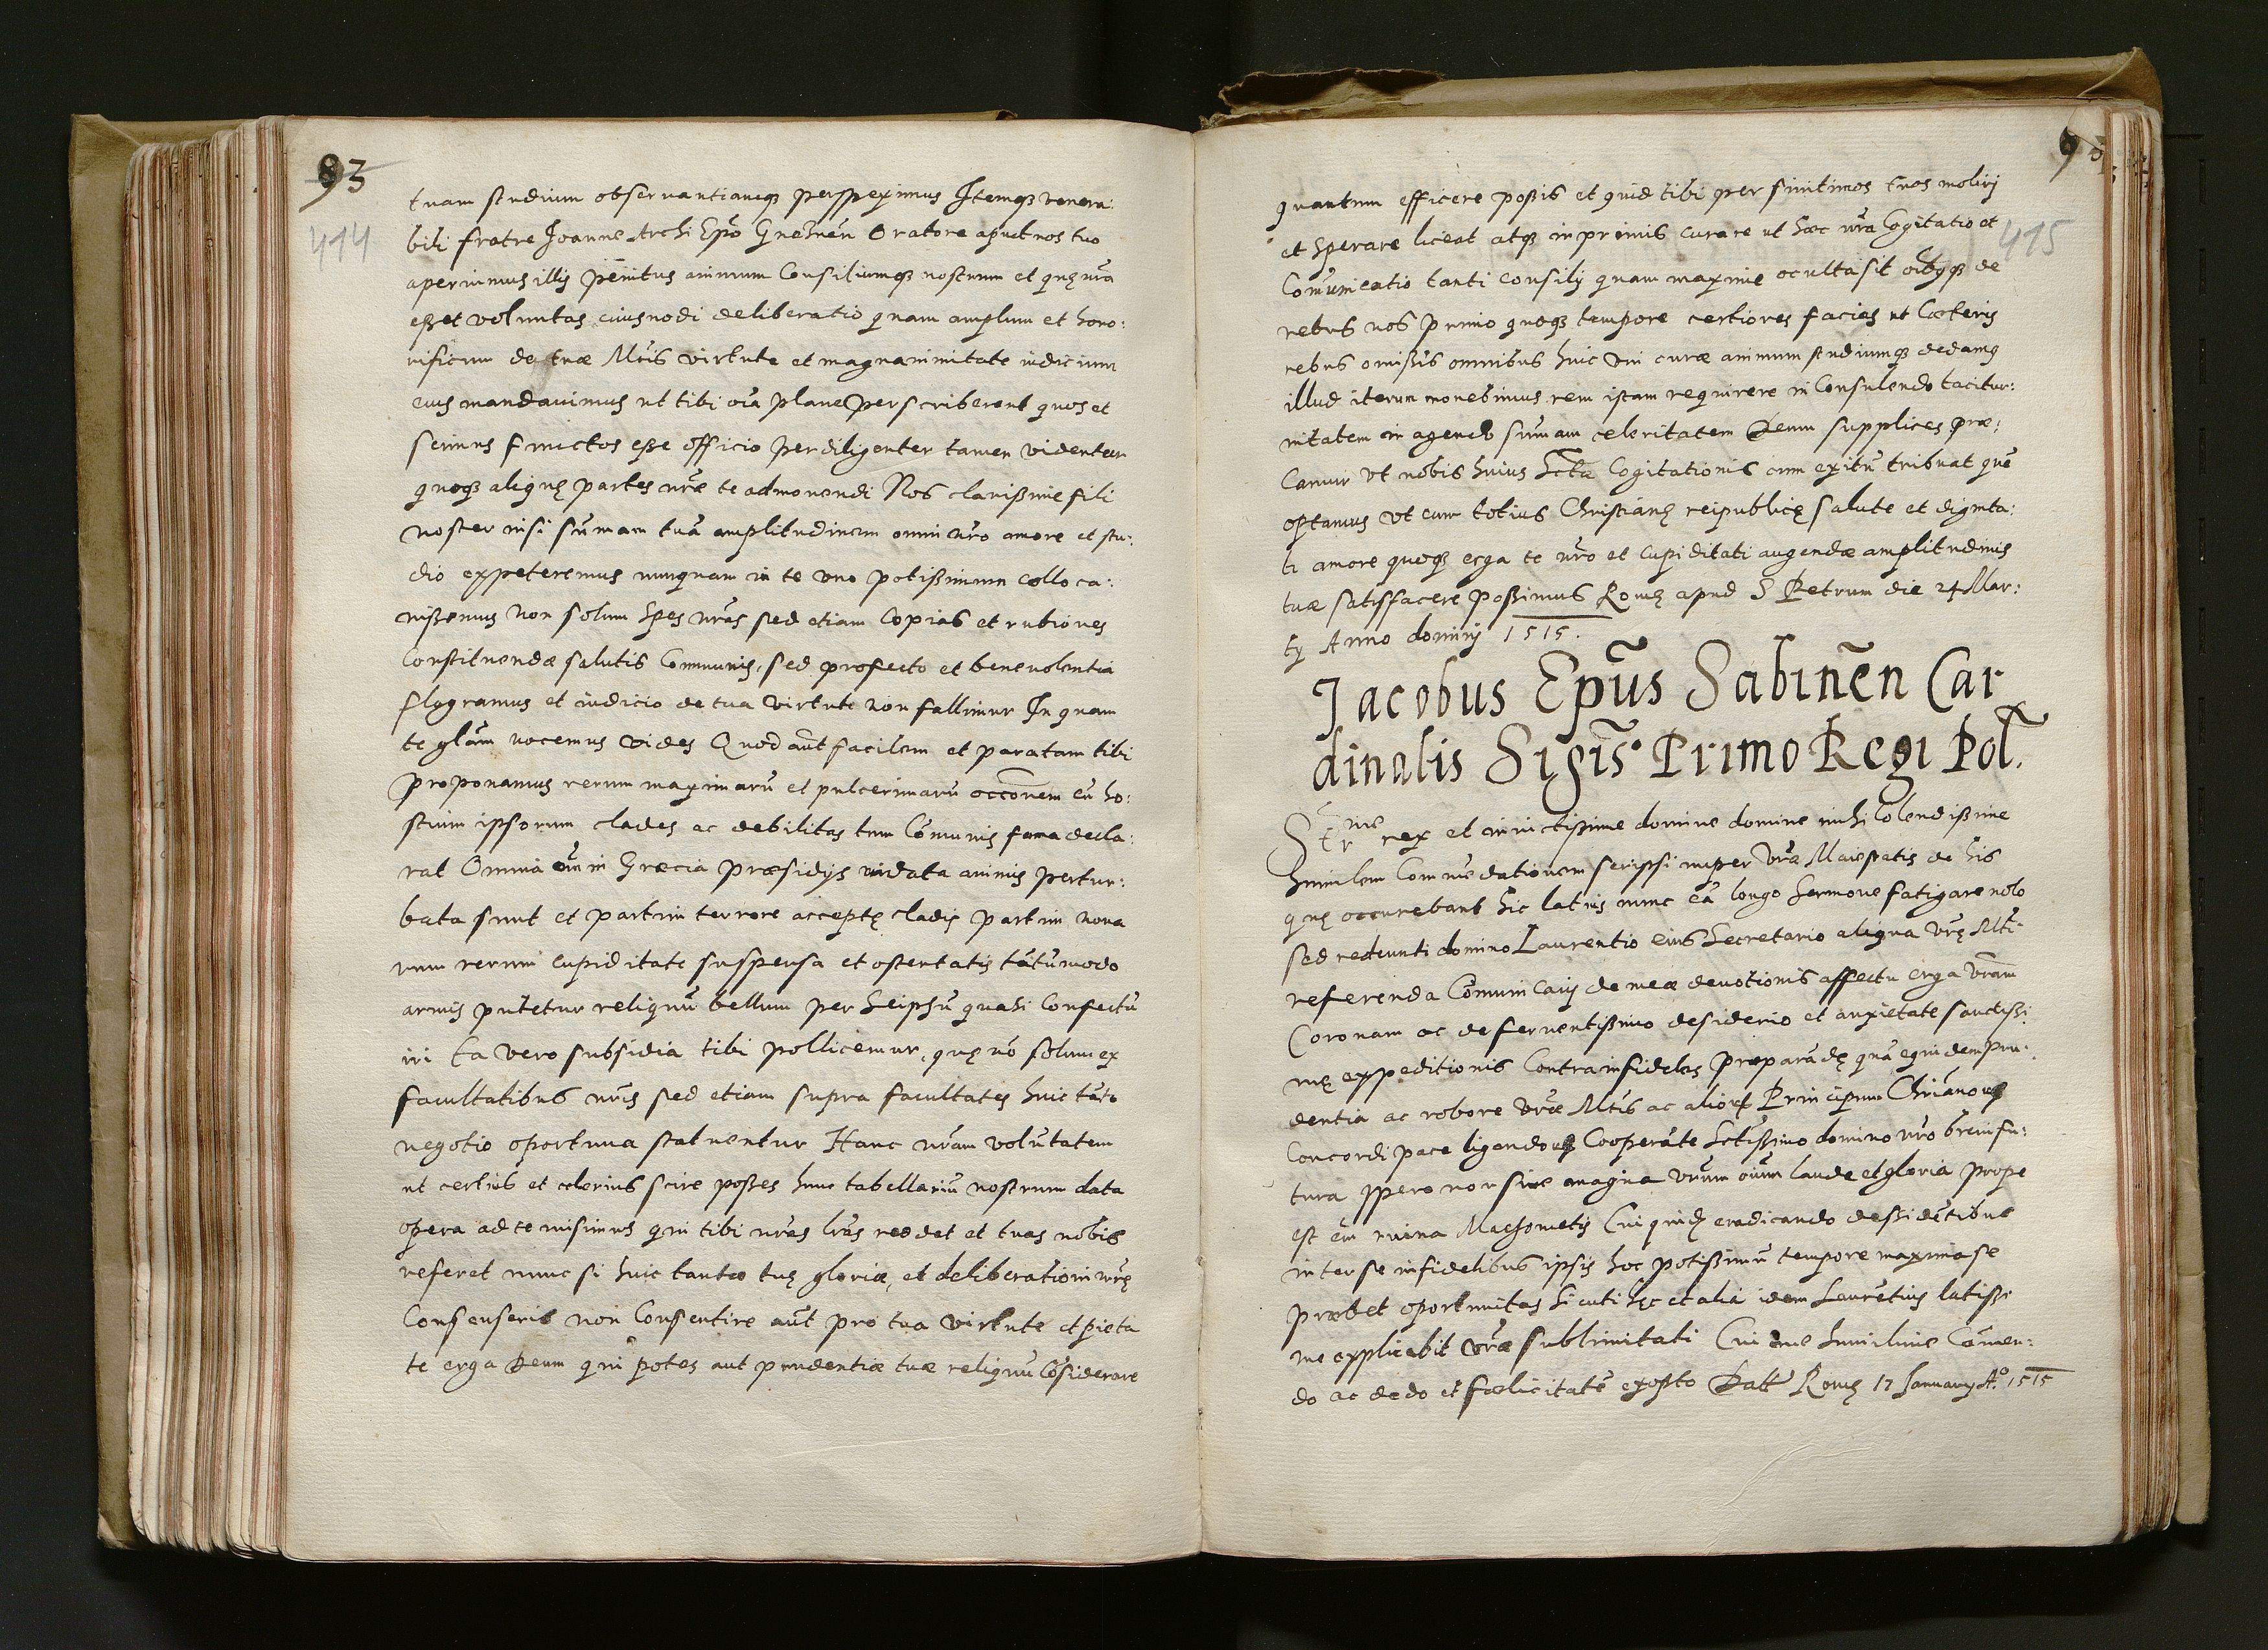 93
414
tuam studium observantiamq₃ perspeximus Itemq₃ venera:
bili fratre Joanne Archi Epō Gneznēn Oratore aput nos tuo
aperuimus illis pēnitus animum Consiliumq₃ nostrum et quę nr̄a
esset voluntas, eiusmodi deliberatio quam amplum et hono:
rificum de tuæ Mtis virtute et magnanimitate iudicium
eius mandauimus ut tibi oīa plane perscriberent quos et
scimus functos esse officio perdiligenter tamen videntur
quoq₃ aliquę partes nr̄æ te admonendi Nos clarissime fili
noster nisi sūmam tuā amplitudinem omni nr̄o amore et stu:
dio expeteremus nunquam in te vno potissimum colloca:
uissemus non solum spes nr̄as sed etiam Copias et rationes
Constituendæ salutis Communis, sed profecto et beneuolentia
flagramus et iudicio de tua virtute non fallimur In quam
te glām vocemus vides Quod aūt facilem et paratam tibi
proponamus rerum maximarū et pulcerimarū occōnem cū ho:
stium ipsorum clades ac debilitas tum Cōmunis fama decla:
rat Omnia eīm in Græcia præsidijs nudata animis pertur:
bata sunt et partim terrore acceptę cladis partim noua
rum rerum cupiditate suspensa et ostentatis tātūmodo
armis putetur reliquū bellum per seipsū quasi Confectū
iri Ea vero subsidia tibi pollicemur, quę nō solum ex
facultatibus nr̄is sed etiam supra facultates huic tāto
negotio oportuna statuentur Hanc nr̄am volūtatem
ut certius et celerius scire posses hunc tabellariū nostrum data
opera ad te misimus qui tibi nr̄as lr̄as reddet et tuas nobis
referet nunc si huic tantæ tuę gloriæ, et deliberationi nr̄ę
Consenseris non Consentire aūt pro tua virtute et pieta
te erga Deum qui potes aut prudentiæ tuæ reliquū Cōsiderare
415
quantum efficere possis et quid tibi per finitimos tuos moliri
et sperare liceat atq₃ inprimis curare ut hæc nr̄a Cogitatio et
Comūnicatio tanti consilij quam maxime oculta sit oībq₃ de
rebus nos primo quoq₃ tempore certiores facias ut Cæteris
rebus omissis omnibus huic vni curæ animum studiumq₃ dedamq
illud iterum monebimus rem istam requirere in Consulendo tacitur:
nitatem in agendo sūmam celeritatem Deum supplices præ:
camur Vt nobis huius Sctæ Cogitationis eum exitū tribuat quē
optamus Vt cum totius Christianę reipublicę salute et dignita:
ti amore quoq₃ erga te nr̄o et Cupiditati augendæ amplitudinis
tuæ satisfacere possimus Romę apud S Petrum die 24 Mar:
tij Anno dominij 1515.
Jacobus Epūs Sabinēn Car
dinalis Sigis̄. Primo Regi Pol.
Serme rex et inuictissime domine domine mihi Colendissime
humilem Commēdationem scripsi nuper Vr̄æ Maiestatis de his
quę occurebant hic latius nunc eā longo Sermone fatigare nolo
sed redeunti domino Laurentio eius Secretario aliqua Vr̄ę Mti
referenda Cōmunicaui de meæ deuotionis affectu erga Vr̄am
Coronam ac de feruentissimo desiderio et anxietate sanctissi:
mę expeditionis Contra infideles præparādę quā equidem pru:
dentia ac robore Vr̄æ Mtis ac alioꝝ Principum Chriānoꝝ
Concordi pace ligandoꝝ Cooperāte Sctissimo domino nr̄o breui fu:
tura spero non sine magna Vr̄um oīum laude et gloria prope
est eīm ruina Machometis Cui quidē eradicando dessidētibus
inter se infidelibus ipsis hoc potissimū tempore maxima se
præbet oportunitas Sicuti hęc et alia idem Laurētius latissi
me explicabit Vr̄æ sublimitati Cui me humilime Cōmen:
do ac dedo et fœlicitatē exopto Datt Romę 17 January Aº. 1515